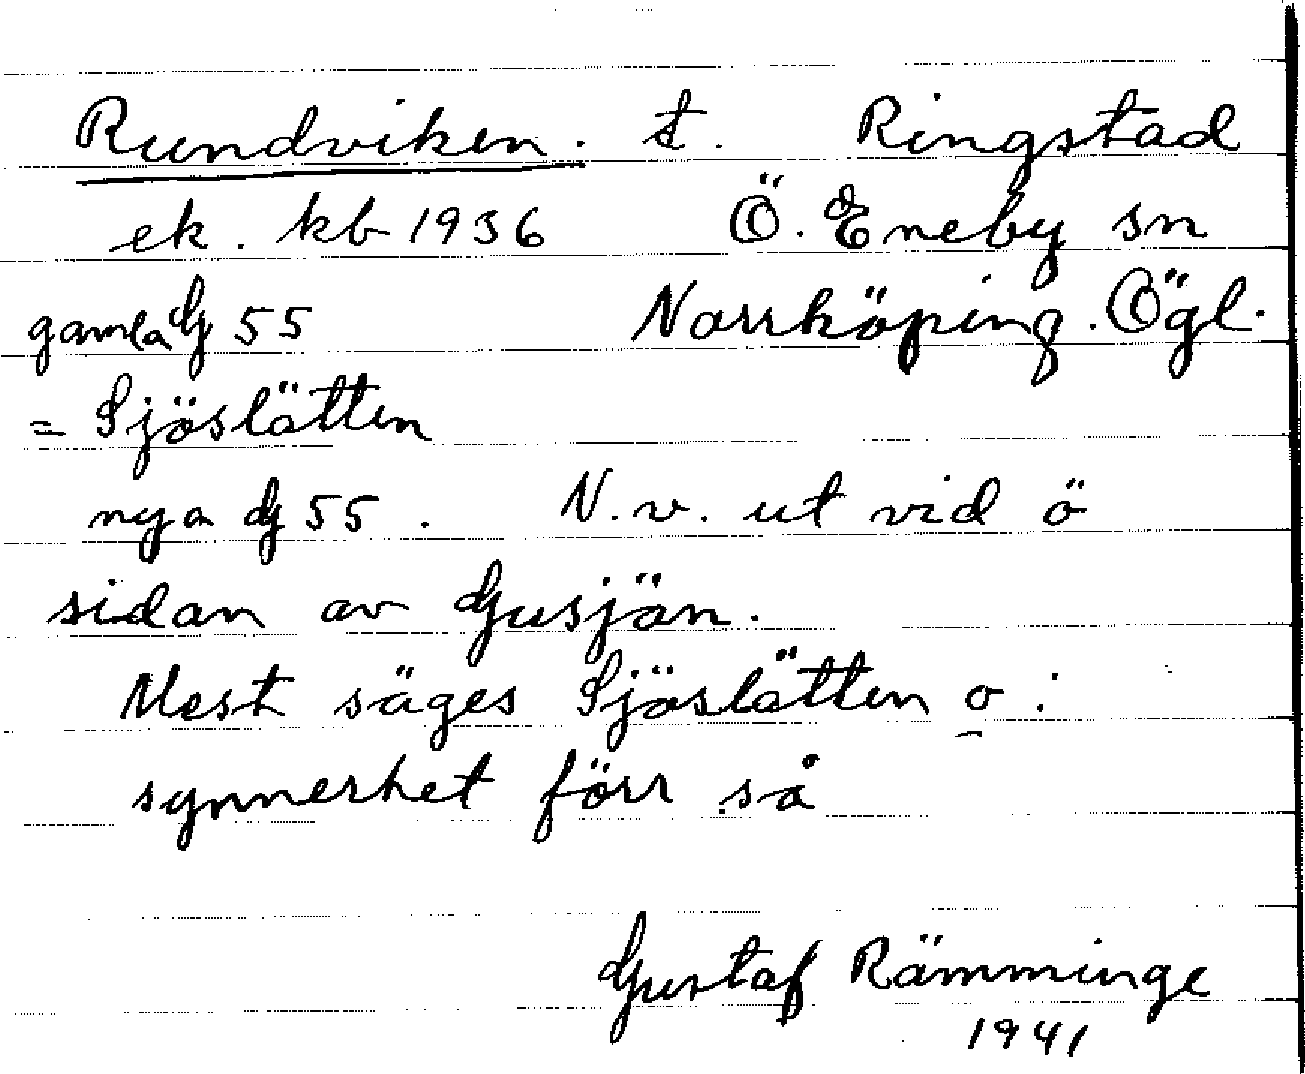 Rundviken. t. Ringstad
ek. kb 1936 Ö. Eneby sn
gamla G 55 Norrköping. Ögl.
= Sjöslätten
nya G 55. N.v. ut vid ö
sidan av Gusjön.
Mest säges Sjöslätten o i
synnerhet förr så
Gustaf Rämminge
1941